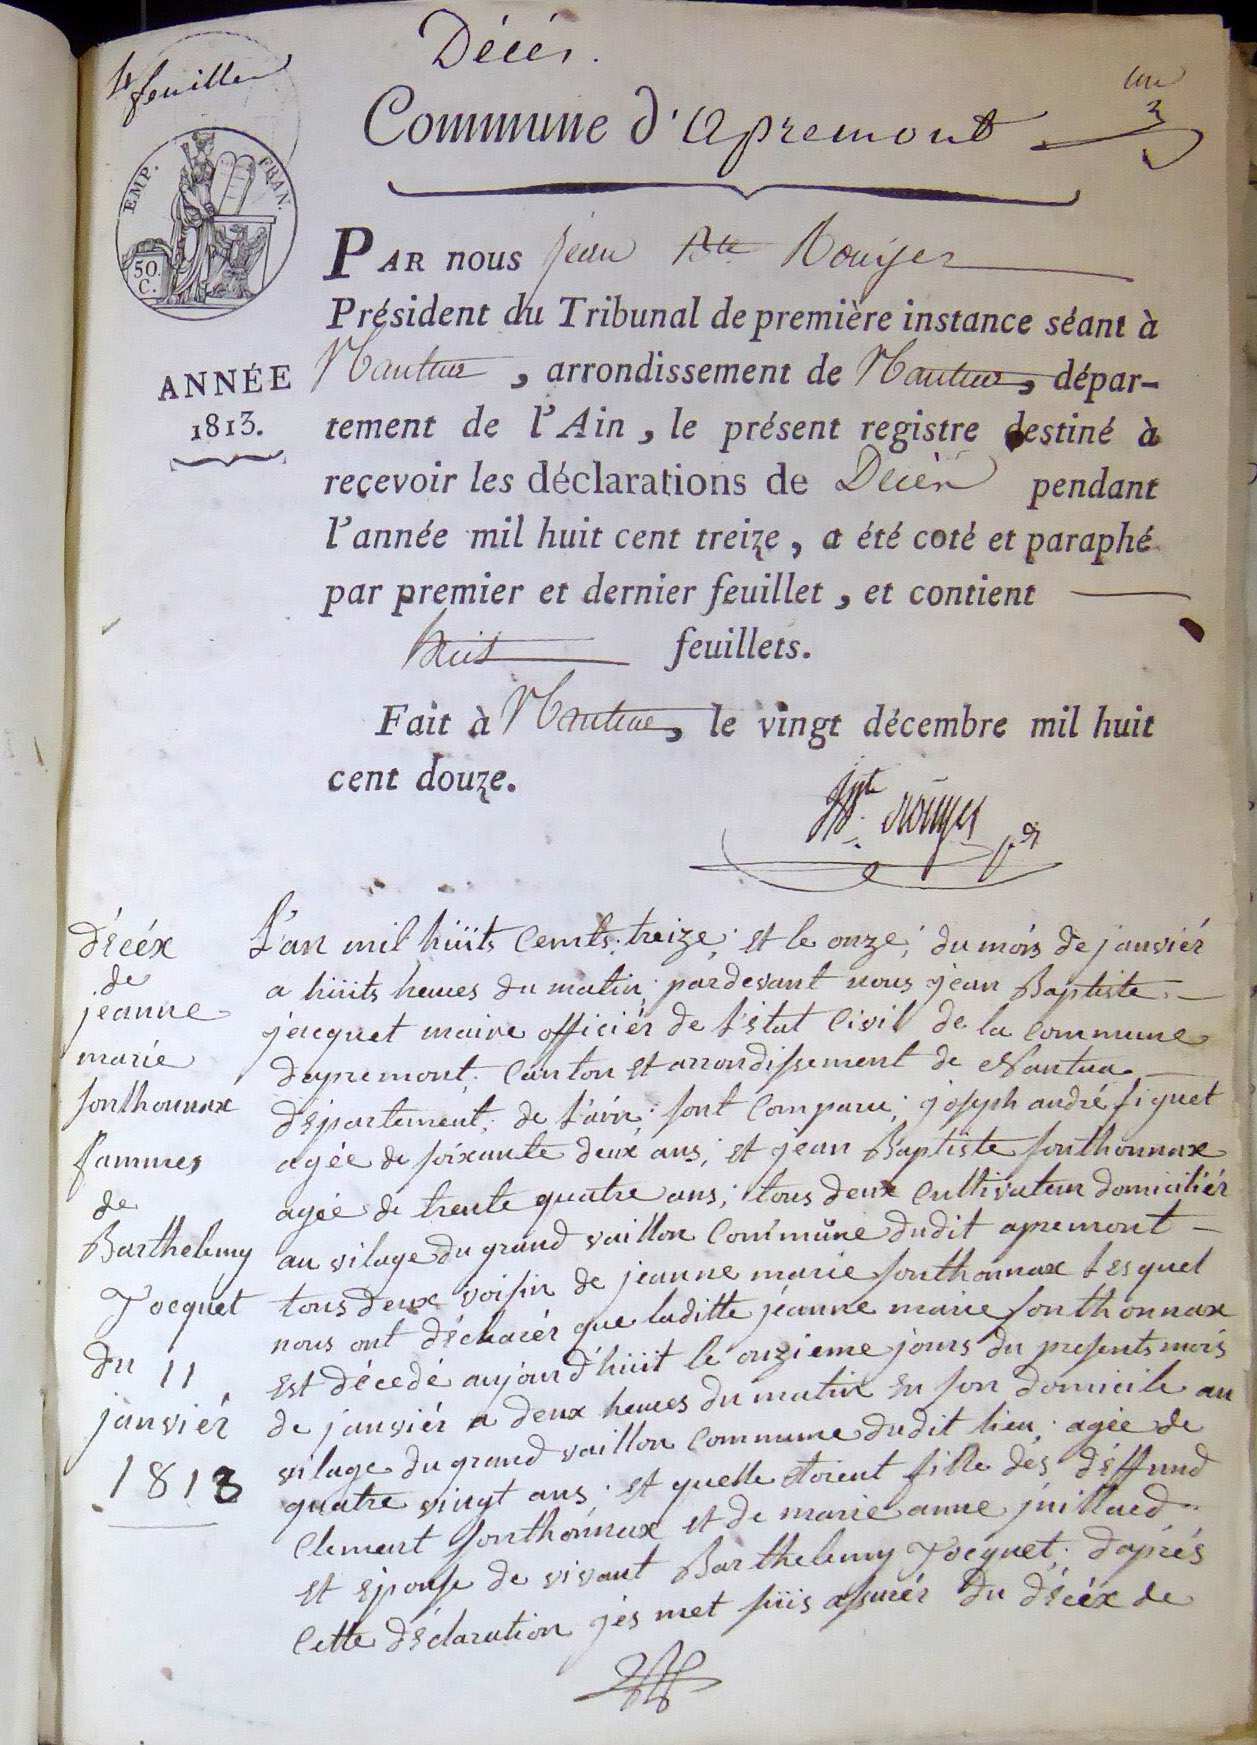 Décès.
1er feuillet
un
Commune d'Apremont
EMP. FRAN.
50. C.
PAR nous Jean Bte Rouyer
Président du Tribunal de première instance séant à
ANNÉE
1813.
Nantua, arrondissement de Nantua, dépar-
tement de l'Ain, le présent registre destiné à
recevoir les déclarations de Décès pendant
l'année mil huit cent treize, a été coté et paraphé
par premier et dernier feuillet, et contient
huit feuillets.
Fait à Nantua, le vingt décembre mil huit
cent douze.
Bte. Rouyer
décéx
de
jeanne
marie
sonthonnax
fammes
de
Barthelemy
Jocquet
du 11
janviér
1813
L'an mil hüits cents treize; et le onze; du mois de janviér
a hüits heures du matin; pardevant nous jean Baptiste
jacquet maire officiér de l'état Civil de la commune
dapremont; Canton et arrondissement de Nantua
département; de l'ain; sont comparu; joseph andré
agée de soixante deux ans; et jean Baptiste sonthonnax
agée de trente quatre ans; tous deux cultivateur domiciliér
au vilage du grand vaillon commune dudit apremont
tous deux voisin de jeanne marie sonthonnax lesquel
nous ont déclarér que laditte jéanne marie sonthonnax
est décedé aujourd'hüit le onzieme jours du presents mois
de janviér a deux heures du matin en son domicile au
vilage du grand vaillon commune dudit lieu; agée de
quatre vingt ans; et quelle étoient fille des déffund
Clement sonthonnax et de marie anne juillard
et épouse de vivant Barthelemy Jocquet; daprés
cette déclaration jes met süis assurér du décéx de